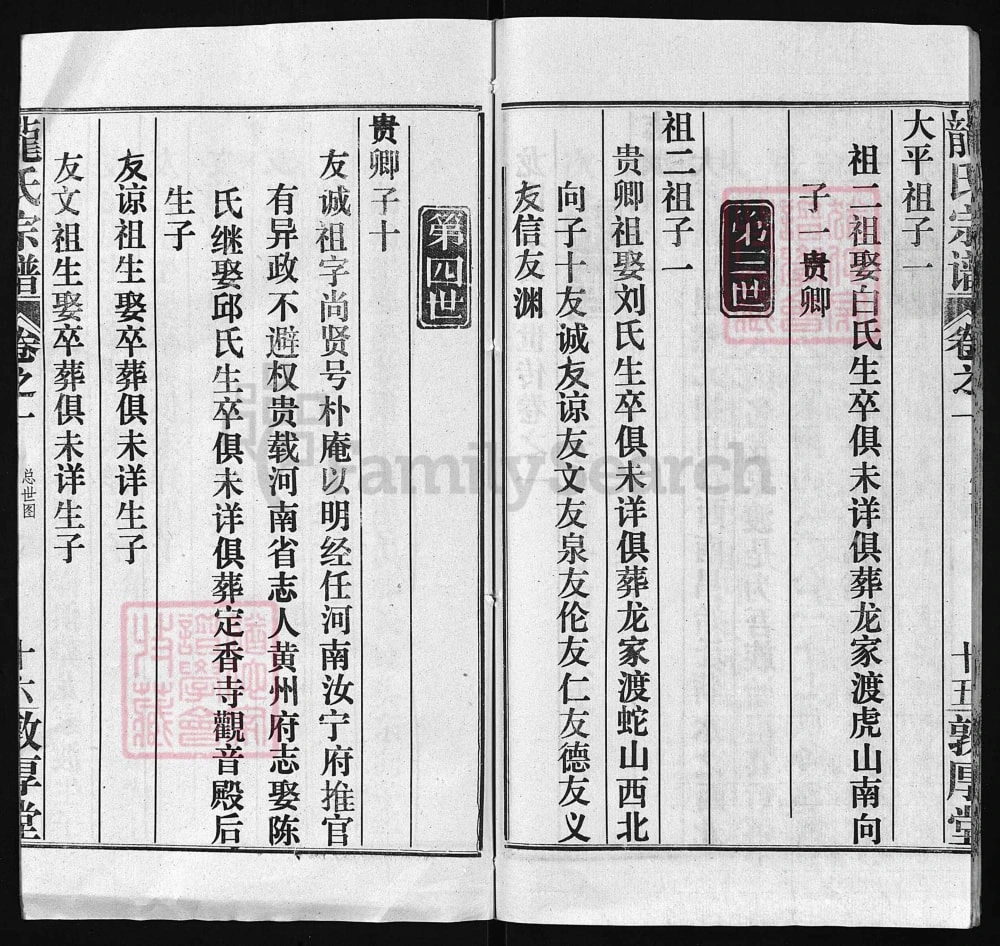 龍氏宗谱 卷之一 十五 敦厚堂
大平祖子一
祖二祖娶白氏生卒俱未详俱葬龙家渡虎山南向
子一贵卿
第三世
祖二祖子一
贵卿祖娶刘氏生卒俱未详俱葬龙家渡蛇山西北
向子十友诚友谅友文友泉友伦友仁友德友义
友信友渊
第四世
贵卿子十
友诚祖字尚贤号朴庵以明经任河南汝宁府推官
有异政不避权贵载河南省志人黄州府志娶陈
氏继娶邱氏生卒俱未详俱葬定香寺觀音殿后
生子
友谅祖生娶卒葬俱未详生子
友文祖生娶卒葬俱未详生子
龍氏宗譜 卷之一 总世图 十六 敦厚堂
FamilySearch